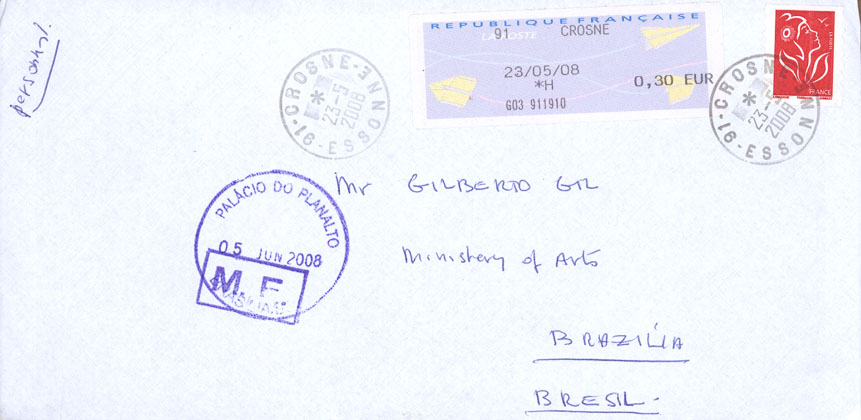 personal.
REPUBLIQUE FRANÇAISE
LA POSTE
91 CROSNE
23/05/08
*H
0,30 EUR
G03 911910
FRANCE
CROSNE-
* 23-5
2008
91-ESSONNE
CROSNE-
* 23-5
2008
91-ESSONNE
Mr GILBERTO GIL
Ministery of Arts
BRAZILIA
BRESIL.
PALÁCIO DO PLANALTO
05 JUN 2008